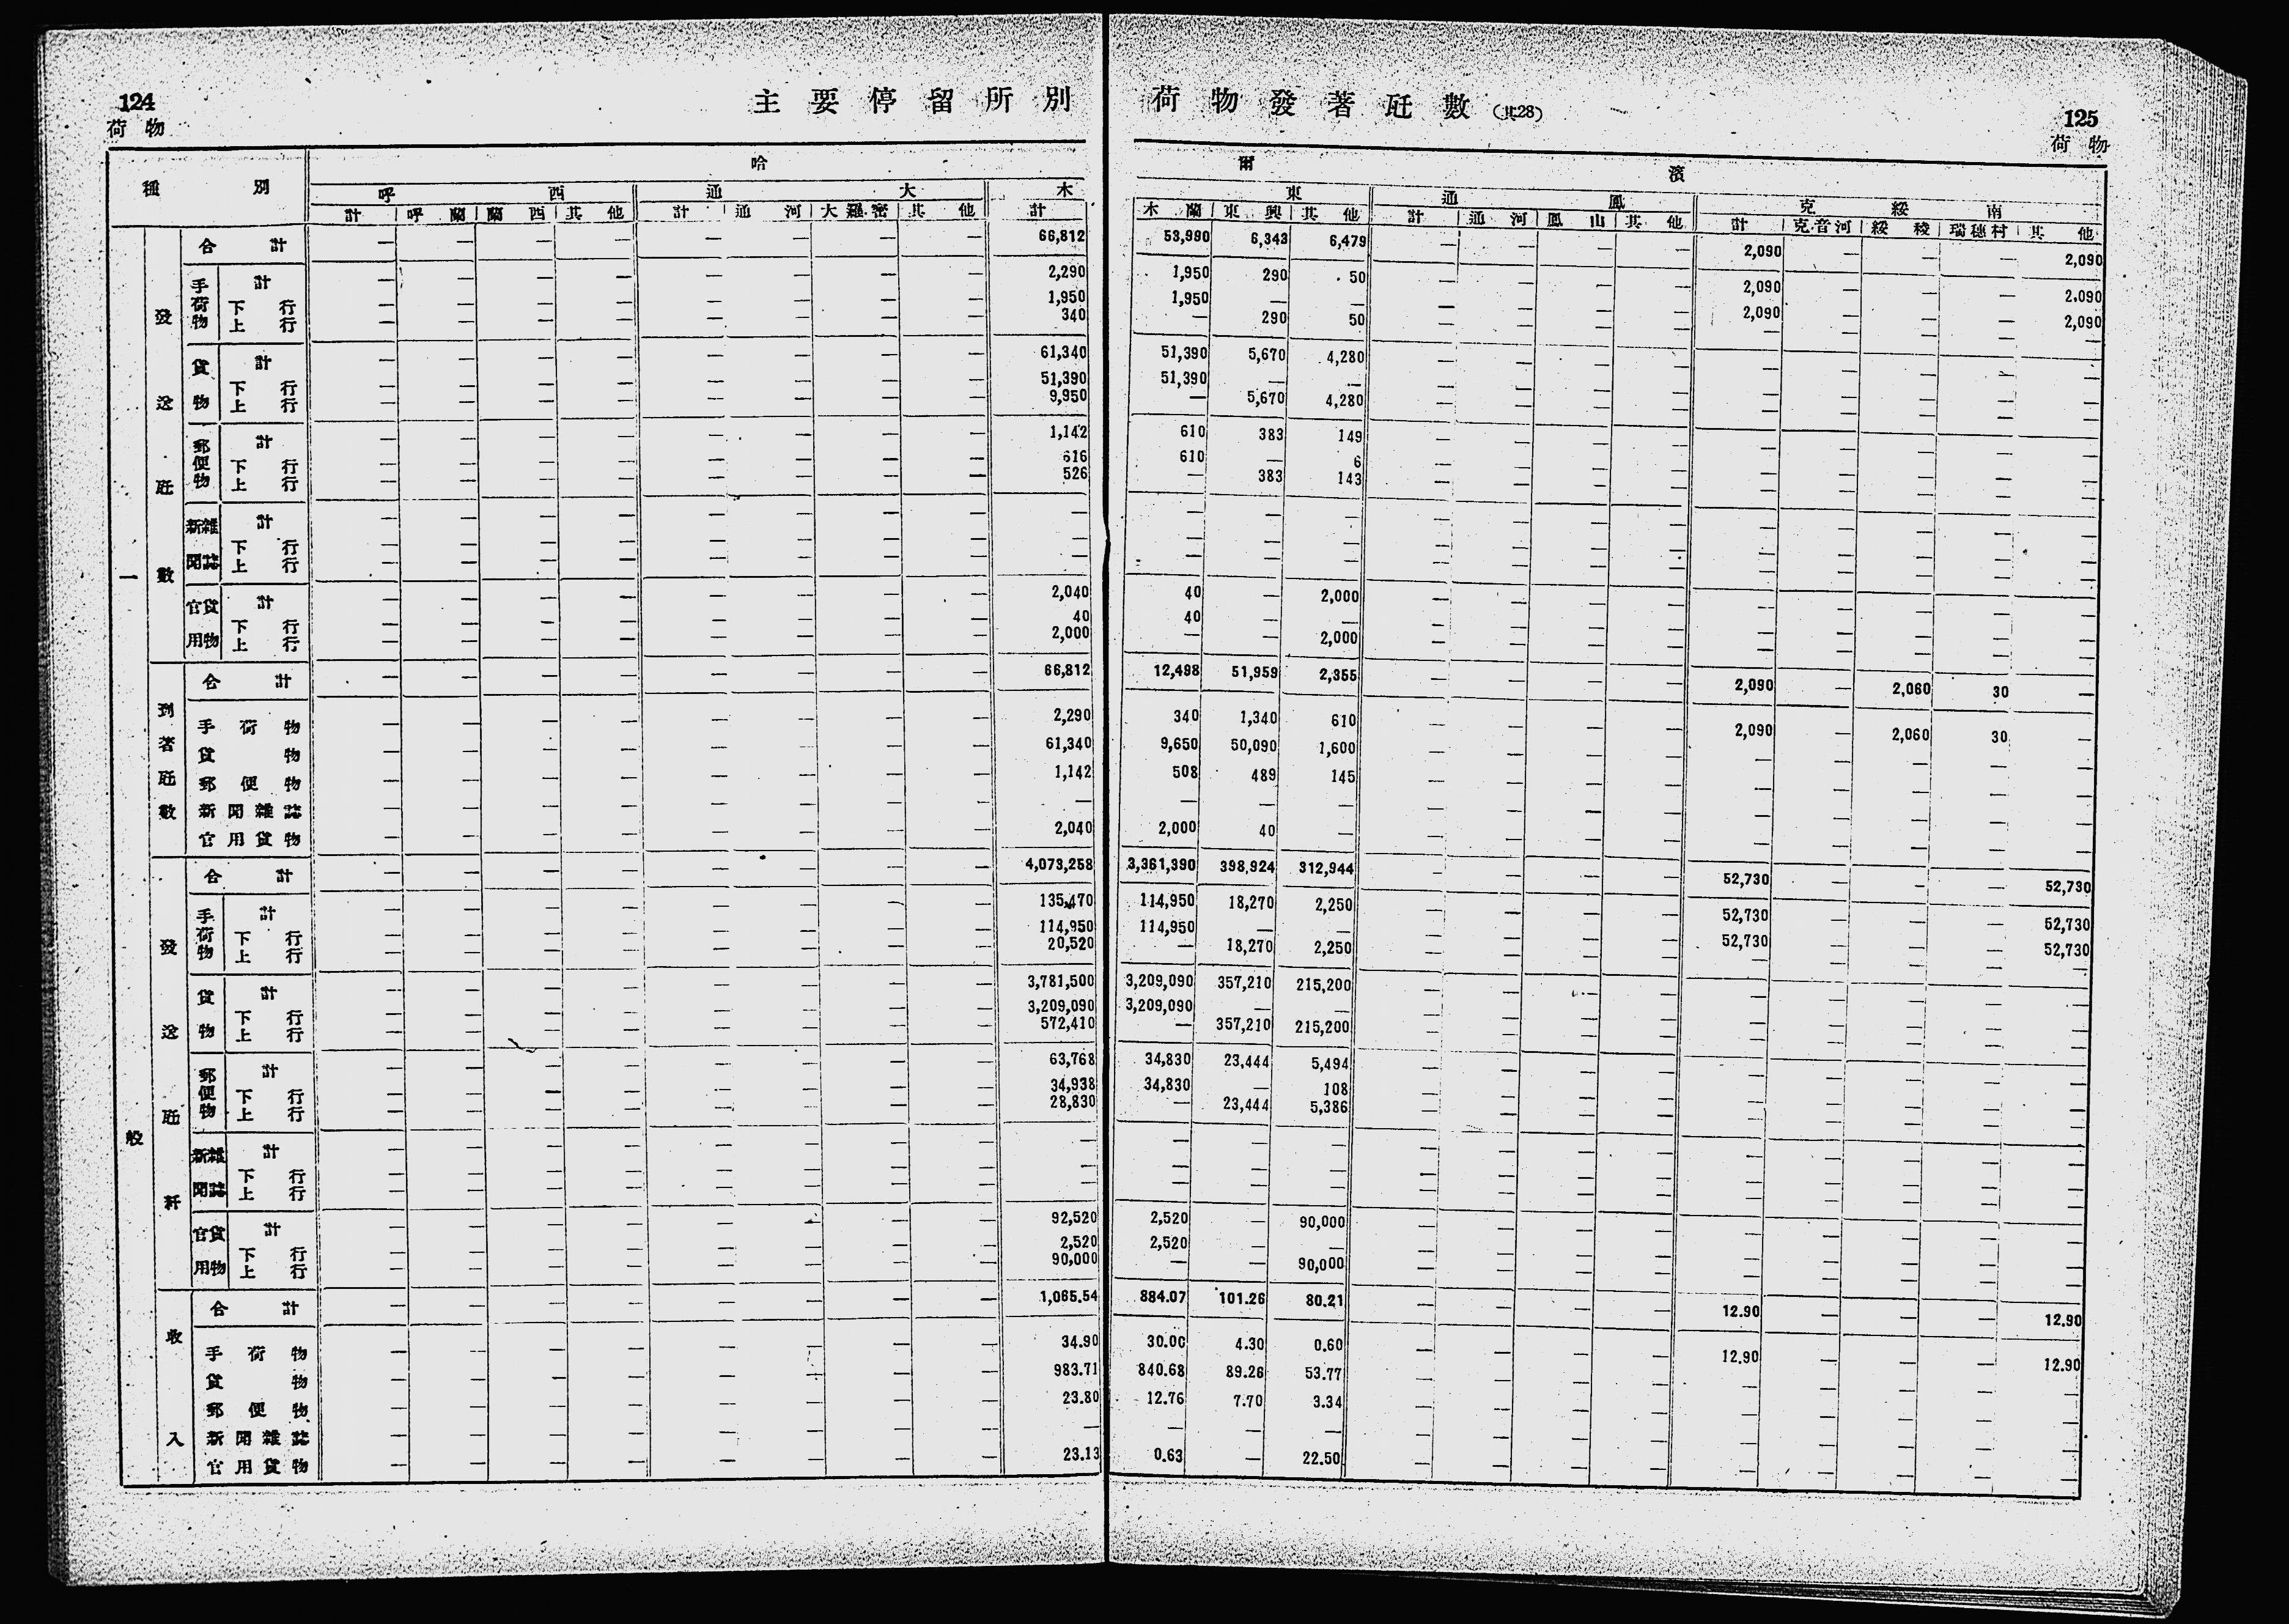 124
荷物
主要停留所別
荷物發著瓩數(其28)
125
荷物
種別 哈 爾 濱
呼 西 通 大 木 東 通 鳳 克 綏 南
計 呼蘭 蘭西 其他 計 通河 大羅密 其他 計 木蘭 東興 其他 計 通河 鳳山 其他 計 克音河 綏稜 瑞穗村 其他
一般
發送瓩數
合計 — — — — — — — — 66,812 53,990 6,343 6,479 — — — — 2,090 — — — 2,090
手荷物 計 — — — — — — — — 2,290 1,950 290 50 — — — — 2,090 — — — 2,090
下行 — — — — — — — — 1,950 1,950 — — — — — — 2,090 — — — 2,090
上行 — — — — — — — — 340 — 290 50 — — — — — — — — —
貨物 計 — — — — — — — — 61,340 51,390 5,670 4,280 — — — — — — — — —
下行 — — — — — — — — 51,390 51,390 — — — — — — — — — — —
上行 — — — — — — — — 9,950 — 5,670 4,280 — — — — — — — — —
郵便物 計 — — — — — — — — 1,142 610 383 149 — — — — — — — — —
下行 — — — — — — — — 616 610 — 6 — — — — — — — — —
上行 — — — — — — — — 526 — 383 143 — — — — — — — — —
新聞雜誌 計 — — — — — — — — — — — — — — — — — — — — —
下行 — — — — — — — — — — — — — — — — — — — — —
上行 — — — — — — — — — — — — — — — — — — — — —
官用貨物 計 — — — — — — — — 2,040 40 — 2,000 — — — — — — — — —
下行 — — — — — — — — 40 40 — — — — — — — — — — —
上行 — — — — — — — — 2,000 — — 2,000 — — — — — — — — —
到著瓩數
合計 — — — — — — — — 66,812 12,498 51,959 2,355 — — — — 2,090 — 2,060 30 —
手荷物 — — — — — — — — 2,290 340 1,340 610 — — — — 2,090 — 2,060 30 —
貨物 — — — — — — — — 61,340 9,650 50,090 1,600 — — — — — — — — —
郵便物 — — — — — — — — 1,142 508 489 145 — — — — — — — — —
新聞雜誌 — — — — — — — — — — — — — — — — — — — — —
官用貨物 — — — — — — — — 2,040 2,000 40 — — — — — — — — — —
發送瓩粁
合計 — — — — — — — — 4,073,258 3,361,390 398,924 312,944 — — — — 52,730 — — — 52,730
手荷物 計 — — — — — — — — 135,470 114,950 18,270 2,250 — — — — 52,730 — — — 52,730
下行 — — — — — — — — 114,950 114,950 — — — — — — 52,730 — — — 52,730
上行 — — — — — — — — 20,520 — 18,270 2,250 — — — — — — — — —
貨物 計 — — — — — — — — 3,781,500 3,209,090 357,210 215,200 — — — — — — — — —
下行 — — — — — — — — 3,209,090 3,209,090 — — — — — — — — — — —
上行 — — — — — — — — 572,410 — 357,210 215,200 — — — — — — — — —
郵便物 計 — — — — — — — — 63,768 34,830 23,444 5,494 — — — — — — — — —
下行 — — — — — — — — 34,938 34,830 — 108 — — — — — — — — —
上行 — — — — — — — — 28,830 — 23,444 5,386 — — — — — — — — —
新聞雜誌 計 — — — — — — — — — — — — — — — — — — — — —
下行 — — — — — — — — — — — — — — — — — — — — —
上行 — — — — — — — — — — — — — — — — — — — — —
官用貨物 計 — — — — — — — — 92,520 2,520 — 90,000 — — — — — — — — —
下行 — — — — — — — — 2,520 2,520 — — — — — — — — — — —
上行 — — — — — — — — 90,000 — — 90,000 — — — — — — — — —
收入
合計 — — — — — — — — 1,065.54 884.07 101.26 80.21 — — — — 12.90 — — — 12.90
手荷物 — — — — — — — — 34.90 30.00 4.30 0.60 — — — — 12.90 — — — 12.90
貨物 — — — — — — — — 983.71 840.68 89.26 53.77 — — — — — — — — —
郵便物 — — — — — — — — 23.80 12.76 7.70 3.34 — — — — — — — — —
新聞雜誌 — — — — — — — — — — — — — — — — — — — — —
官用貨物 — — — — — — — — 23.13 0.63 — 22.50 — — — — — — — — —